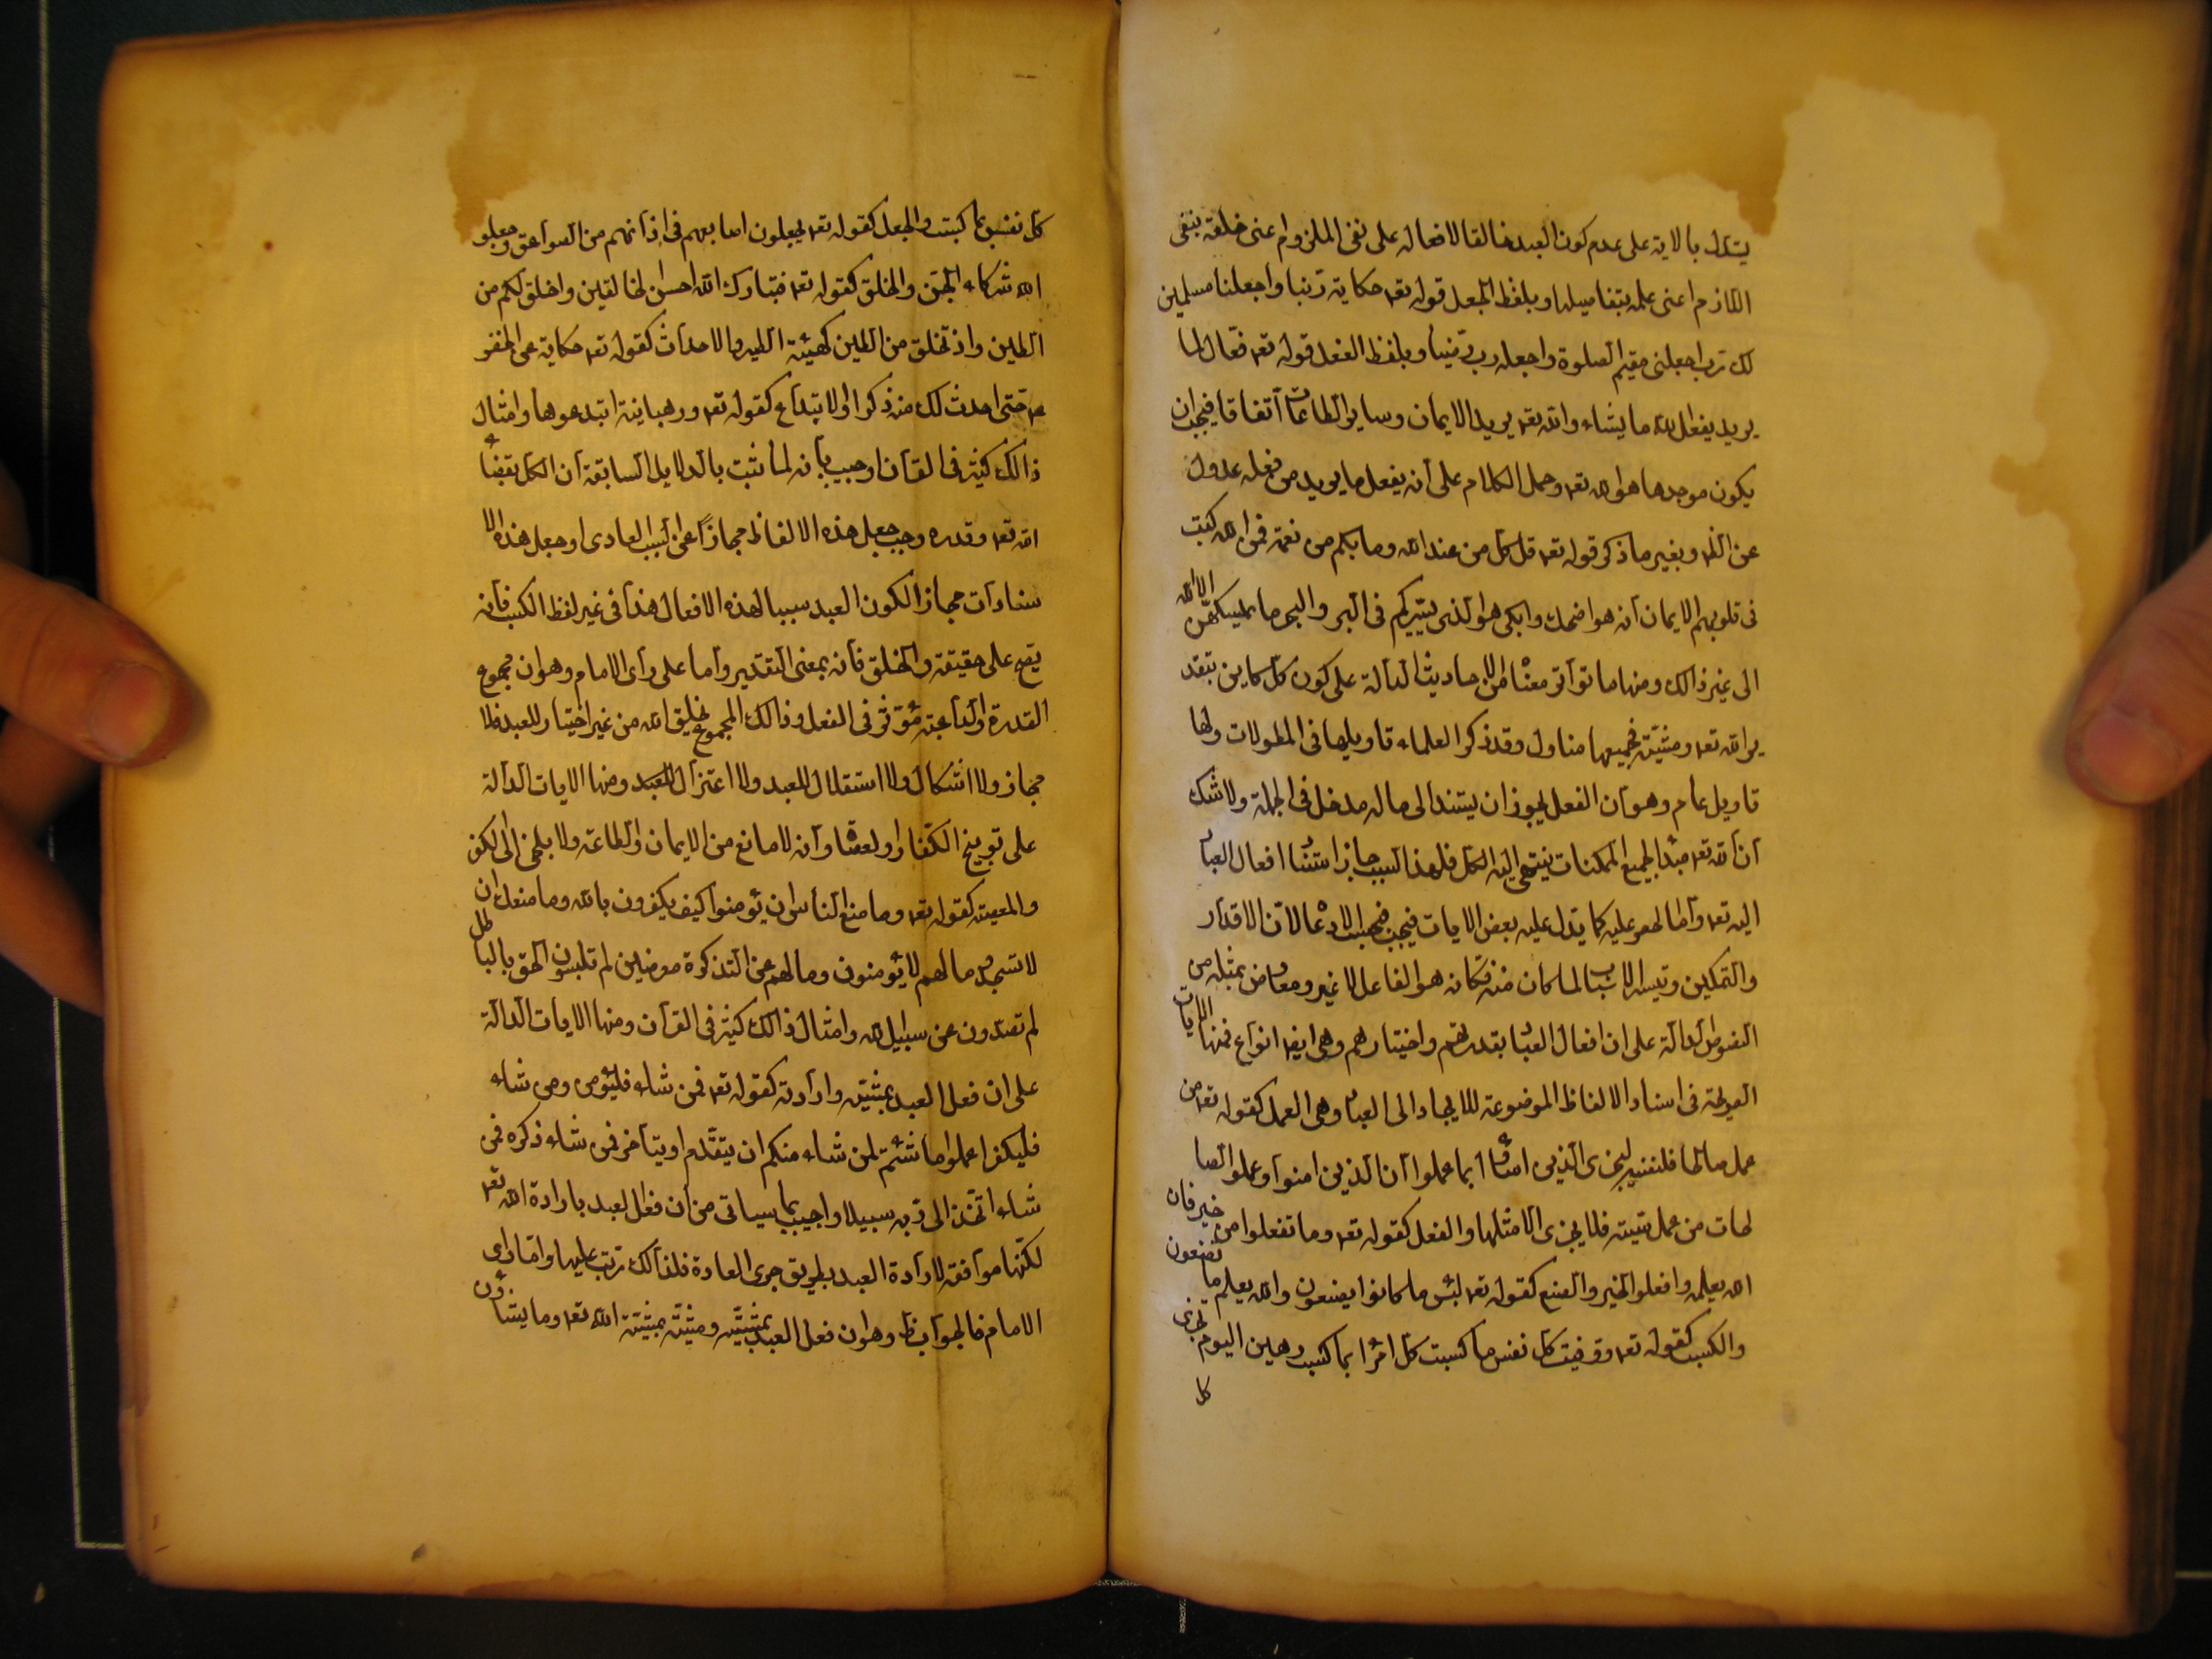 يستدل بالاية على عدم كون العبد خالقا لافعاله على نفى الملزوم اعنى خلقه بنفى
اللازم اعنى علمه بتفاصيلها وبلفظ الجعل قوله تعه حكاية ربنا واجعلنا مسلمين
لك رب اجعلنى مقيم الصلوة واجعله رب رضيا وبلفظ الفعل قوله تعه فعّال لما
يريد يفعل الله ما يشاء والله تعه يريد الايمان وساير الطاعات اتفاقا فيجب ان
يكون موجدها هو الله تعه وحمل الكلام على انه يفعل ما يريد من فعله عدول
عن الظ وبغير ما ذكر قوله تعه قل كل من عند الله وما بكم من نعمة فمن الله كتب
فى قلوبهم الايمان انه هو اضحك وابكى هو الذى يسيّركم فى البر والبحر ما يمسكهن الا الله
الى غير ذالك ومنها ما تواتر معناه من الاحاديث الدالة على كون كل كاين بتقد
ير الله تعه ومشيته فجميعها متاول وقد ذكر العلماء تاويلها فى المطولات ولها
تاويل عام وهو ان الفعل يجوز ان يستند الى ماله مدخل فى الجملة ولا شك
ان الله تعه مبدا لجميع الممكنات ينتهى اليه الكل فلهذا السبب جاز استناد افعال العباد
اليه تعه واما لحصر عليه كما يدل عليه بعض الايات فيجب الادعاء لان الاقدار
والتمكين وتيسير الاسباب لما كان منه فكانه هو الفاعل لا غير ومعارض بمثله من
النصوص الدالة على ان افعال العباد بقدرتهم واختيارهم وهى ايضا انواع فمنها الايات
الصريحة فى اسناد الالفاظ الموضوعة للايجاد الى العباد وهى العمل كقوله تعه من
عمل صالحا فلنفسه ليجزى الذين اساؤا بما عملوا ان الذين امنوا وعملوا الصا
لحات من عمل سيئة فلا يجزى الا مثلها والفعل كقوله تعه وما تفعلوا من خير فان
الله يعلمه وافعلوا الخير والصنع كقوله تعه لبئس ما كانوا يصنعون والله يعلم ما تصنعون
والكسب كقوله تعه ووفيت كل نفس ما كسبت كل امرأ بما كسب رهين اليوم تجزى
كل
كل نفس بما كسبت والجعل كقوله تعه يجعلون اصابعهم فى اذانهم من الصواعق وجعلو
الله شركاء الجن والخلق كقوله تعه فتبارك الله احسن الخالقين واخلق لكم من
الطين واذ تخلق من الطين كهيئة الطير والاحداث كقوله تعه حكاية عن الخضر
عه حتى احدث لك منه ذكرا والابتداع كقوله تعه ورهبانية ابتدعوها وامثال
ذالك كثيرة فى القران اوجيب بانه لما ثبت بالدلايل السابقة ان الكل بقضاء
الله تعه وقدره وجب جعل هذه الالفاظ مجازاً عن السبب العادى او جعل هذه الا
سنادات مجازا لكون العبد سببا لهذه الافعال هذا فى غير لفظ الكسب فانه
يصح على حقيقته والخلق فانه بمعنى التقدير واما على راى الامام وهو ان مجموع
القدرة والداعية مؤثر فى الفعل وذالك المجموع بخلق الله من غير اختيار للعبد فلا
مجاز ولا اشكال ولا استقلال للعبد ولا اعتزال للعبد ومنها الايات الدالة
على توبيخ الكفار والعصاة وانه لا مانع من الايمان والطاعة ولا يلجئ الى الكفر
والمعصية كقوله تعه وما منع الناس ان يؤمنوا كيف يكفرون بالله وما منعك ان
لا تسجد ما لهم لا يؤمنون وما لهم عن التذكرة معرضين لم تلبسون الحق بالباطل
لم تصدون عن سبيل الله وامثال ذالك كثيرة فى القران ومنها الايات الدالة
على ان فعل العبد بمشيته وارادته كقوله تعه فمن شاء فليؤمن ومن شاء
فليكفر اعملوا ما شئتم لمن شاء منكم ان يتقدم او يتأخر فمن شاء ذكره فمن
شاء اتخذ الى ربه سبيلا واجيب بما سياتى من ان فعل العبد بارادة الله تعه
لكنها موافقة لارادة العبد بطريق جرى العادة فلذالك رتب عليها واما راى
الامام فالجواب ظ وهو ان فعل العبد بمشيته ومشيته بمشيئة الله تعه وما يشاؤن